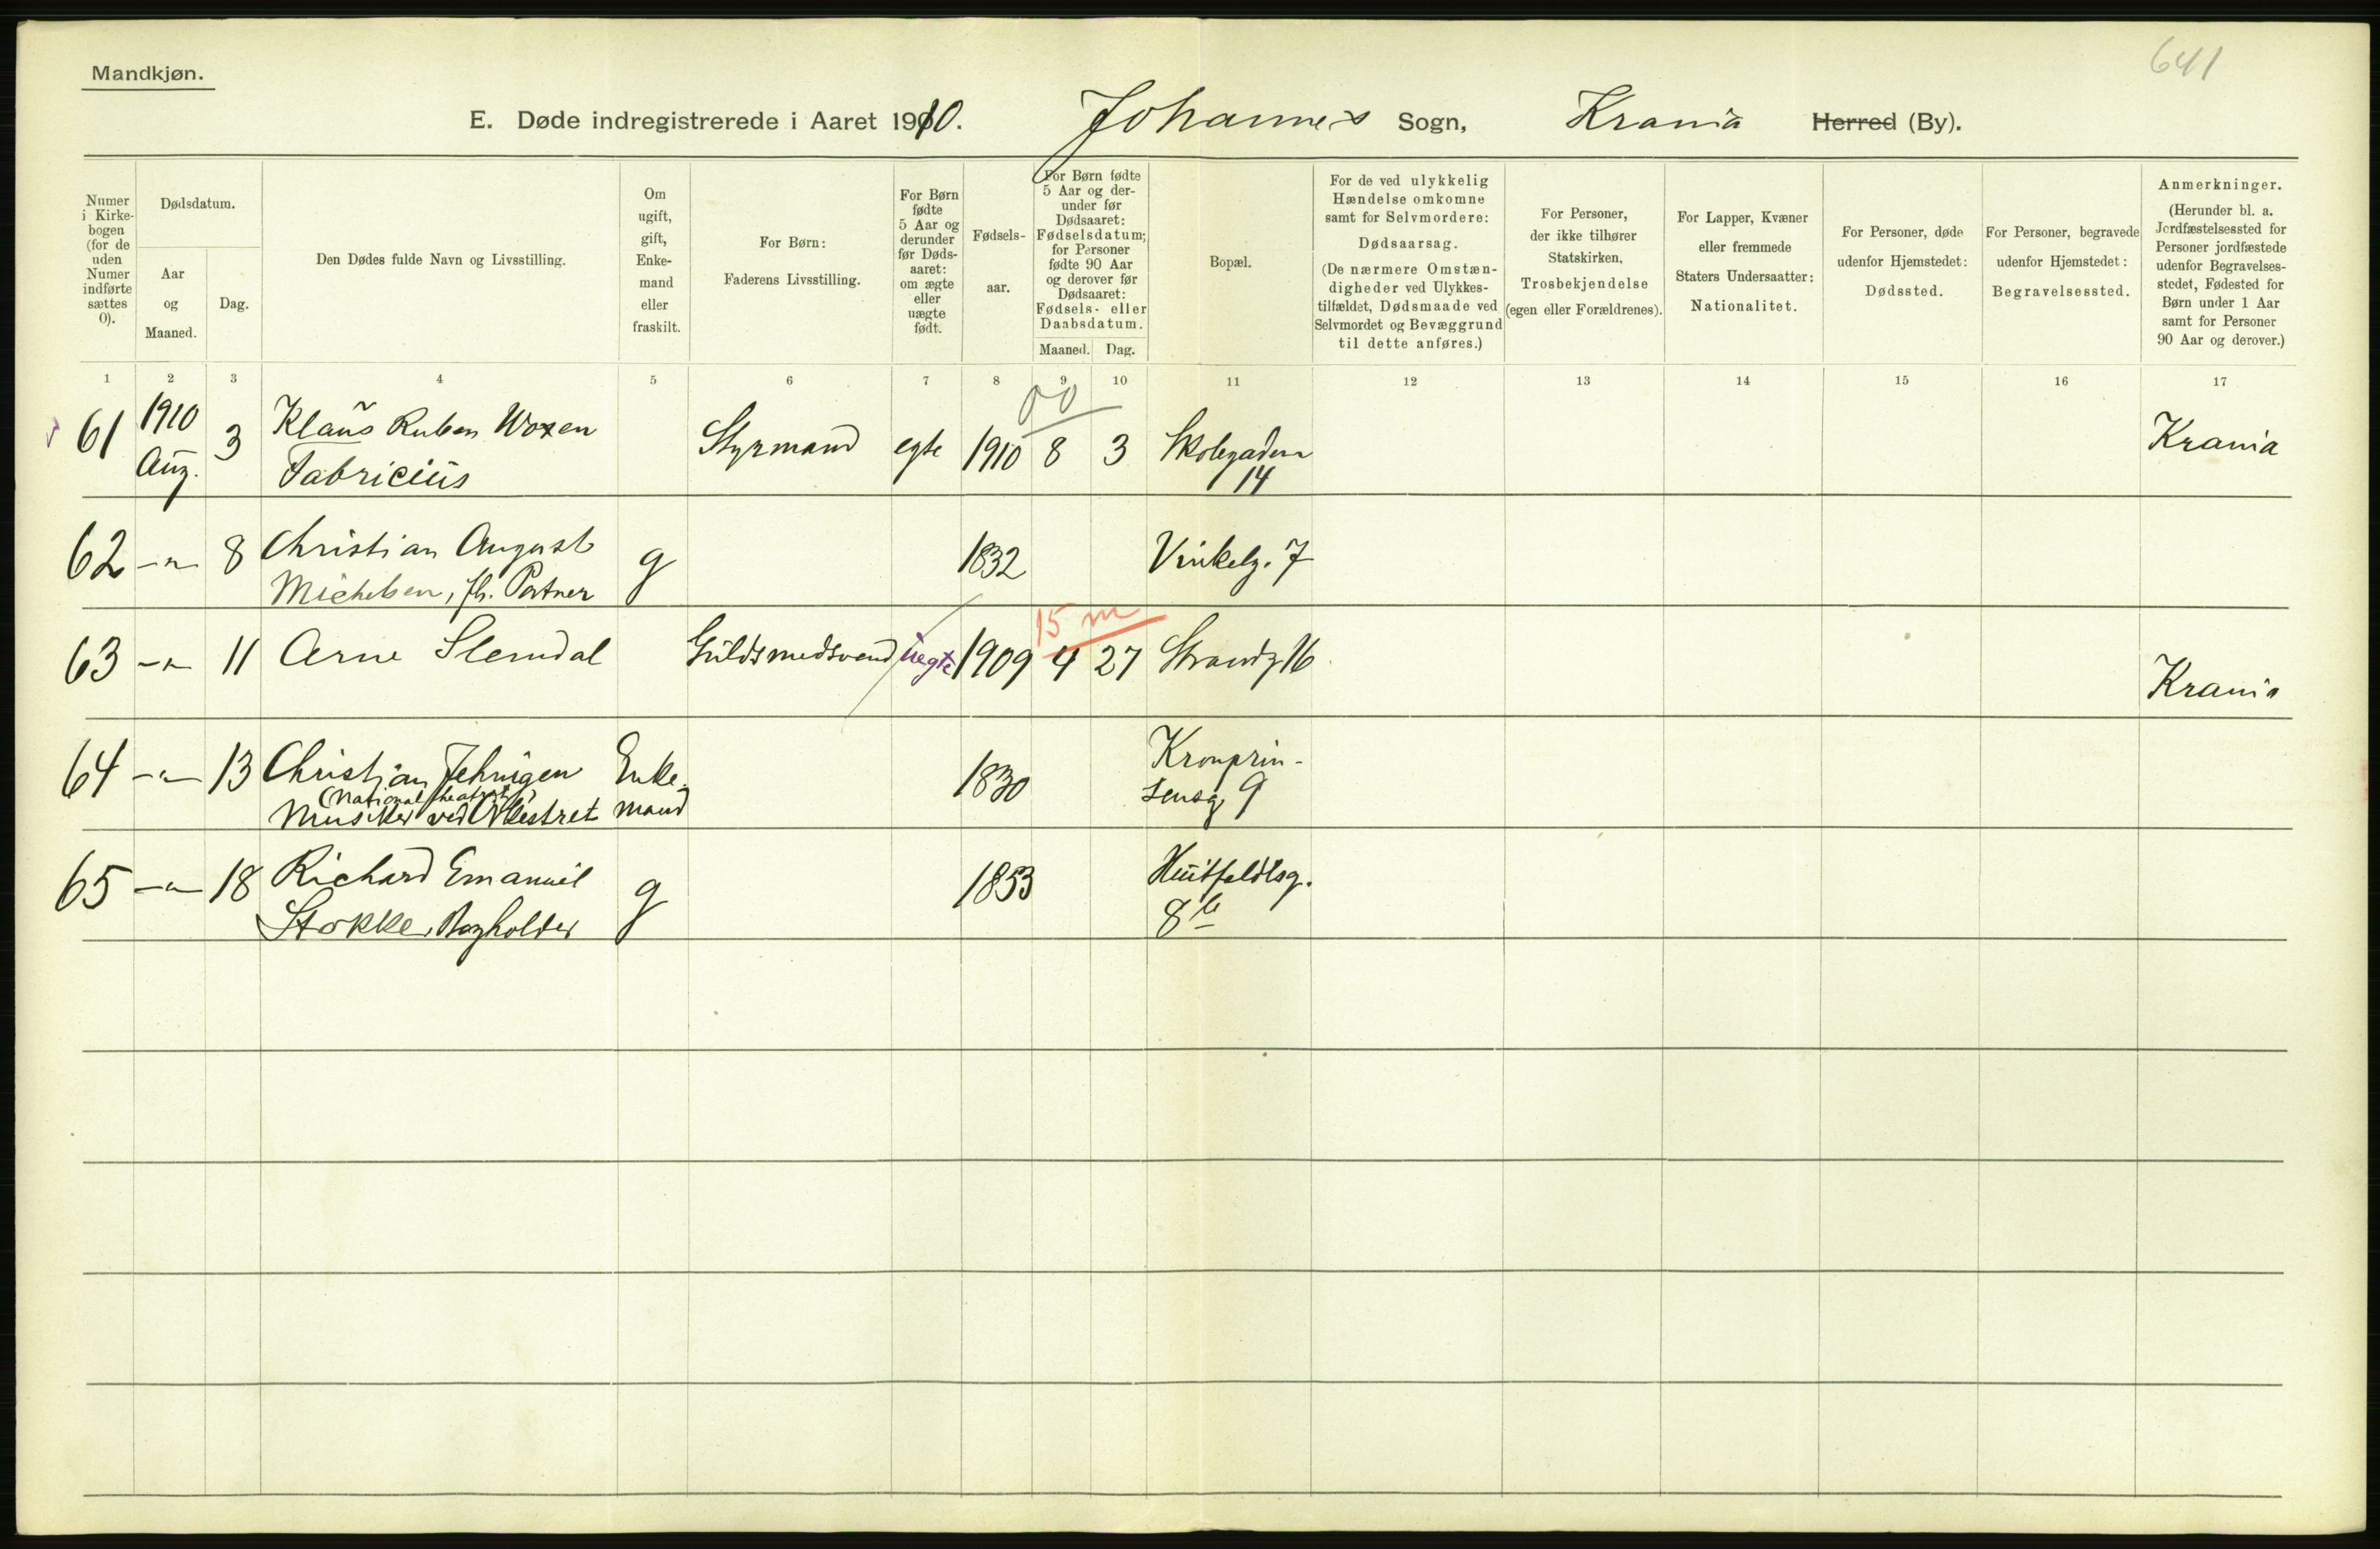 641
Mandkjøn.
E. Døde indregistrerede i Aaret 1910. Johannes Sogn, Krania Herred (By).
Numer i Kirkebogen (for de uden Numer indførte sættes 0).
Dødsdatum.
Aar og Maaned.
Dag.
Den Dødes fulde Navn og Livsstilling.
Om ugift, gift, Enkemand eller fraskilt.
For Børn: Faderens Livsstilling.
For Børn fødte 5 Aar og derunder før Dødsaaret: om ægte eller uægte født.
Fødselsaar.
For Børn fødte 5 Aar og derunder før Dødsaaret: Fødselsdatum; for Personer fødte 90 Aar og derover før Dødsaaret: Fødsels- eller Daabsdatum.
Maaned. Dag.
Bopæl.
For de ved ulykkelig Hændelse omkomne samt for Selvmordere: Dødsaarsag. (De nærmere Omstændigheder ved Ulykkestilfældet, Dødsmaade ved Selvmordet og Bevæggrund til dette anføres.)
For Personer, der ikke tilhører Statskirken, Trosbekjendelse (egen eller Forældrenes).
For Lapper, Kvæner eller fremmede Staters Undersaatter: Nationalitet.
For Personer, døde udenfor Hjemstedet: Dødssted.
For Personer, begravede udenfor Hjemstedet: Begravelsessted.
Anmerkninger. (Herunder bl. a. Jordfæstelsessted for Personer jordfæstede udenfor Begravelsesstedet, Fødested for Børn under 1 Aar samt for Personer 90 Aar og derover.)
1 2 3 4 5 6 7 8 9 10 11 12 13 14 15 16 17
00
61 1910 Aug. 3 Klaus Ruben Woxen Styrmand egte 1910 8 3 Skolegaden Krania
Fabricius 14
62 -"- 8 Christian August g 1832 Vinkelg. 7
Michelsen, fh. Portner
15 m
63 -"- 11 Arne Slemdal Guldsmedsvend uegte 1909 4 27 Strandg 16 Krania
64 -"- 13 Christian Jehnigen Enke- 1830 Kronprin-
(Nationaltheatret)
Musiker ved Orkestret mand sensg. 9
65 -"- 18 Richard Emanuel g 1853 Huitfeldtsg.
Stokke, Bogholder 8 b